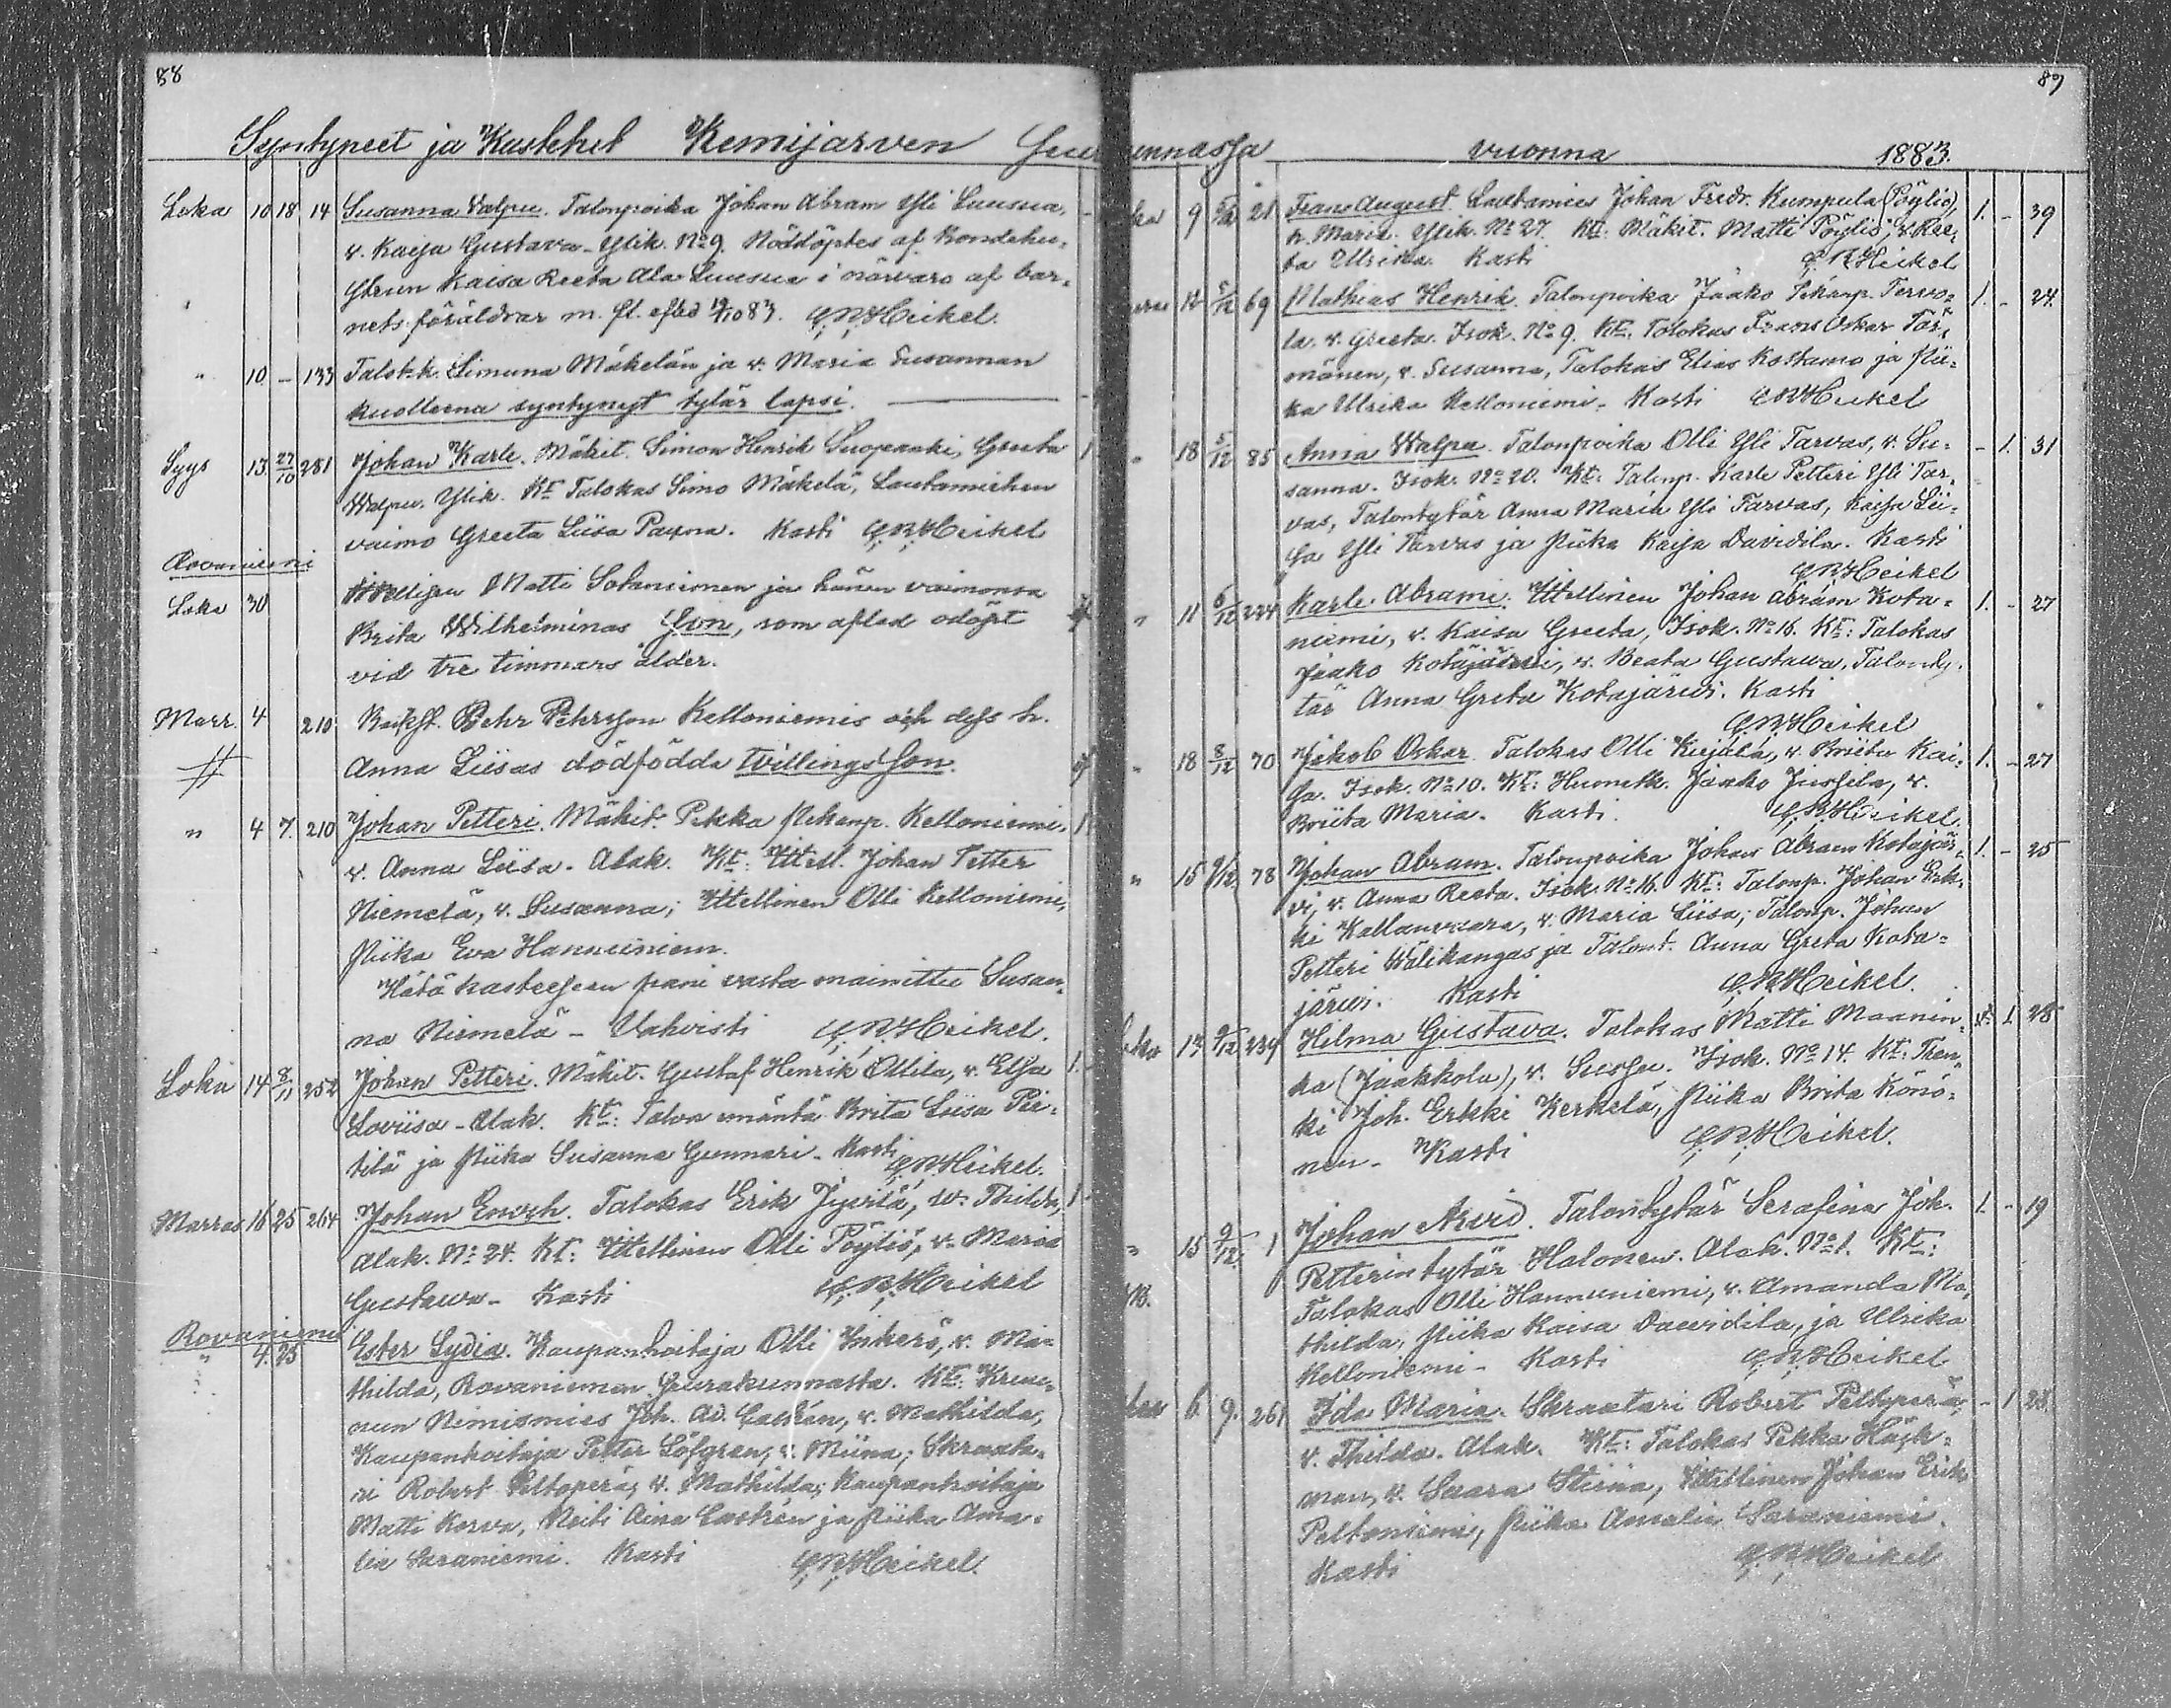 88
Syntyneet ja Kastetut Kemijärven Seur
Loka 10 18 14 Susanna Valpu. Talonpoika Johan Abram Yli Luusua,
v. Kaisa Gustava. Ylik. No 9. Nöddöptes af Bondehu-
strun Kaisa Reeta Ala Luusua i närvaro af bar-
nets föräldrar m. fl. afled 19/10 83. Heikel.
" 10 - 133 Talok.k. Simuna Mäkelän ja v. Maria Susannan
kuolleena syntynyt tytär lapsi.
Syys 13 27/10 281 Johan Karle. Mäkit. Simon Henrik Suopanki, Greeta 1
Walpu. Ylik. Kt Talokas Simo Mäkelä, Lautamiehen
vaimo Greeta Liisa Paxna. Kasti Heikel
Rovaniemi
Loka 30 Matti Sotaniemen ja hänen vaimonsa
Brita Wilhelminas Son, som afled odöpt
vid tre timmars ålder.
Marr. 4 210 Backst. Pehr Pehrsson Kelloniemis och dess h.
Anna Liisas dödfödda tvillings Son.
" 4 7. 210 Johan Petteri. Mäkit. Pekka Pekanp. Kelloniemi, 1
v. Anna Liisa. Alak. Kt: Itell. Johan Petter
Niemelä, v. Susanna; Itellinen Olli Kelloniemi,
Piika Eva Hannuniemi.
Hätä kasteesen pani vasta mainittu Susan-
na Niemelä - Vahvisti Heikel.
Loka 14 8/11 252 Johan Petteri. Mäkit. Gustaf Henrik Ollila, v. Elsa 1.
Loviisa - Alak. Kt: Talon emäntä Brita Liisa Pir-
tilä ja Piika Susanna Gunnari. Kasti Heikel.
Marras 16 25 264 Johan Enoch. Talokas Erik Jyrilä, v. Thilda, 1
Alak. No 24. Kt: Itellinen Olli Pöyliö, v. Maria
Gustava - Kasti Heikel
Rovaniemi
" 4. 25 Ester Lydia. Kaupanhoitaja Olli Inkerö, v. Ma-
thilda, Rovaniemen Seurakunnasta. Kt: Kruu-
nun Nimismies Joh. Ad. Castrén, v. Mathilda,
Kaupanhoitaja Petter Löfgren, v. Miina; Skraata-
ri Robert Peltoperä, v. Mathilda; Kaupanhoitaja
Matti Korva, Neiti Aina Castrén ja Piika Ama-
lia Saraniemi. Kasti Heikel.
89
unnassa vuonna 1883.
9 21 Frans August. Lautamies Johan Fredr. Kumpula (Pöyliö), 1. - 39
h. Maria. Ylik. No 27. Kt: Mäkit. Matti Pöyliö, v. Ree-
ta Ulrika. Kasti Heikel
12 5/12 69 Mathias Henrik. Talonpoika Jaako Pekanp. Tervo- 1. - 24
la. v. Greeta. Isok. No 9. Kt. Talokas Frans Oskar Tör-
mänen, v. Susanna, Talokas Elias Kostamo ja Pii-
ka Ulrika Kelloniemi. Kasti Heikel
" 18 5/12 85 Anna Walpa. Talonpoika Olli Yli Tarvas, v. Su- - 1. 31
sanna. Isok. No 20. Kt: Talonp. Karle Petteri Yli Tar-
vas, Talontytär Anna Maria Yli Tarvas, Kaisa Lii-
sa Yli Tarvas ja Piika Kaisa Davidila. Kasti
Heikel
" 11 6/12 224 Karle Abrami. Itellinen Johan Abram Kota- 1. - 27
niemi, v. Kaisa Greeta, Isok. No 16. Kt: Talokas
Jaako Kotajärvi, v. Beata Gustava, Talonty-
tär Anna Greta Kotajärvi. Kasti
Heikel
" 18 8/12 70 Jakob Oskar. Talokas Olli Karjala, v. Briita Kai- 1. - 27
sa. Isok. No 10. Kt: Huonem. Jaako Jussila, v.
Briita Maria. Kasti. Heikel.
" 15 9/12 78 Johan Abram. Talonpoika Johan Abram Kotajär- 1. - 25
vi, v. Anna Reeta. Isok. No 16. Kt: Talonp. Johan Erk-
ki Kallanvaara, v. Maria Liisa; Talonp. Johan
Petteri Wälikangas ja Talont. Anna Greta Kota-
järvi. Kasti Heikel.
17 9/12 239 Hilma Gustava. Talokas Matti Maanin- 1 28
ka (Jaakkola), v. Sussu. Isok. No 14. Kt: Ren-
ki Joh. Erkki Kerkelä, Piika Brita Könö-
nen. Kasti Heikel.
" 15 9/12. 1 Johan Arvid. Talontytär Serafina Joh. 1. - 19
Petterintytär Halonen. Alak. No 1. Kt:
Talokas Olli Hannuniemi, v. Amanda Ma-
thilda, Piika Kaisa Davidila, ja Ulrika
Kelloniemi - Kasti Heikel
6. 9. 261 Ida Maria. Skraatari Robert Peltoperä, - 1 28
v. Thilda. Alak. Kt: Talokas Pekka Hägg-
man, v. Saara Stiina, Itellinen Johan Erik
Peltoniemi, Piika Amalia Saraniemi.
Kasti Heikel